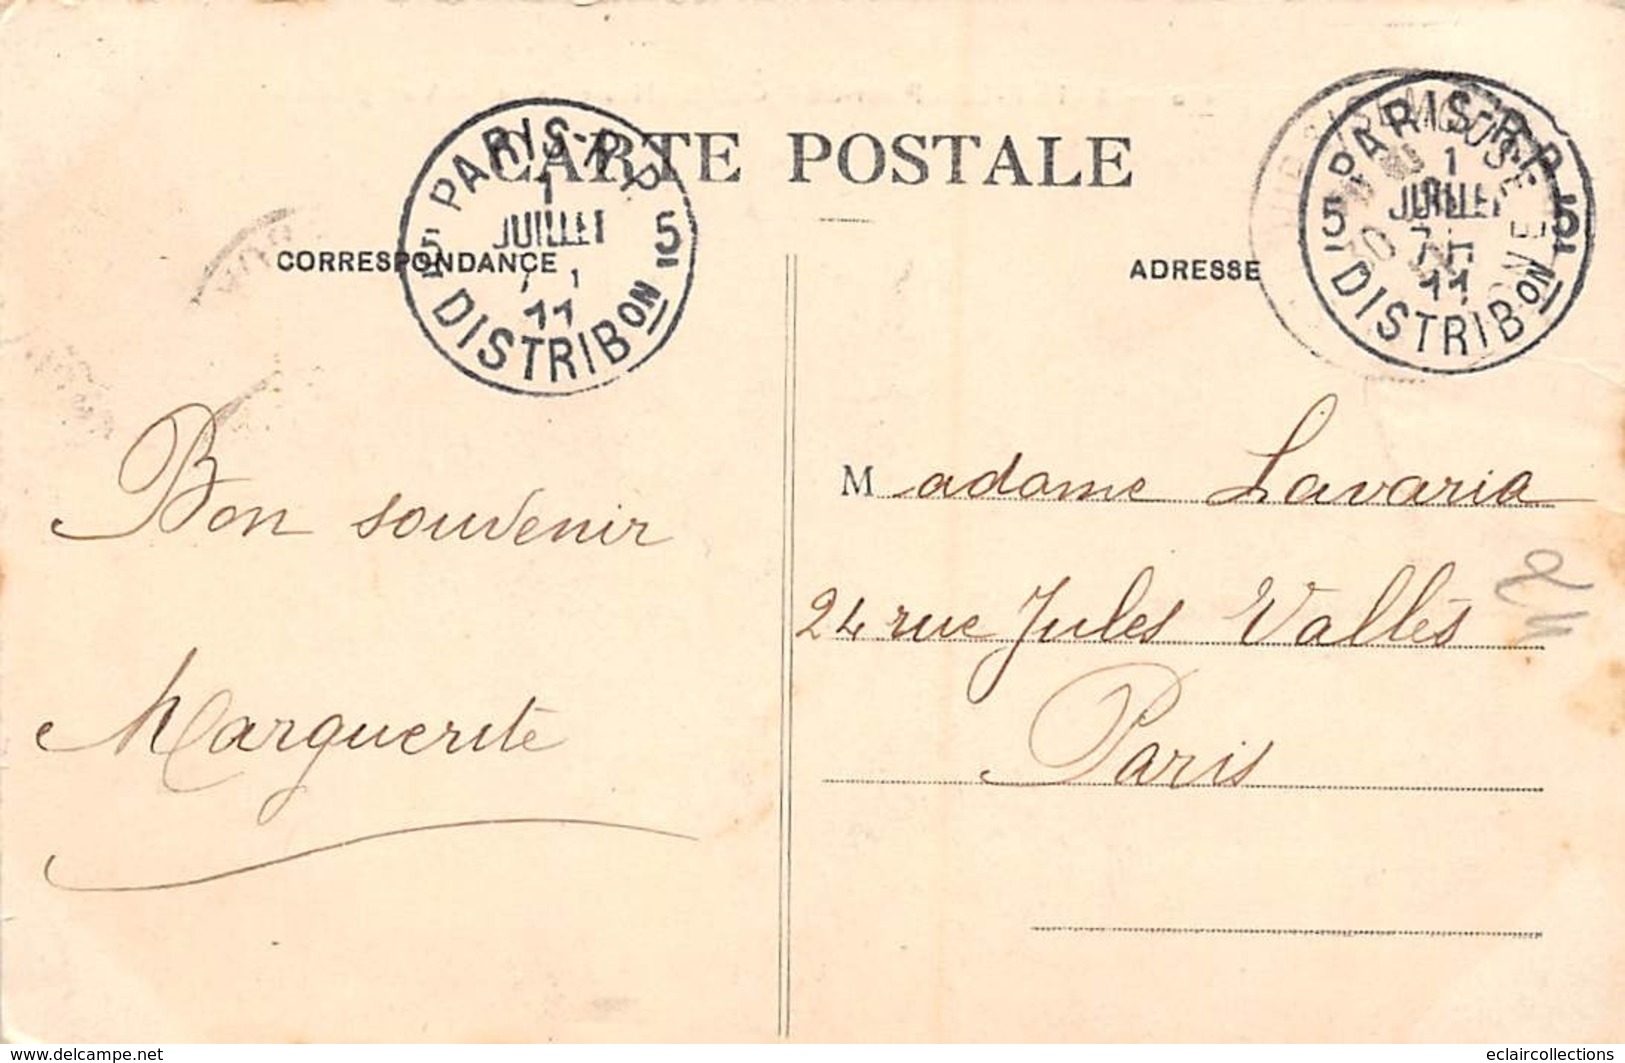 CARTE POSTALE
CORRESPONDANCE
ADRESSE
PARIS-R.P
1
JUILLET
11
5
5
DISTRIBON
PARIS-R.P.
1
JUILLET
7H
11
5
5
DISTRIBON
Bon souvenir
Marguerite
Madame Lavaria
24 rue Jules Vallès
Paris
www.delcampe.net
eclaircollections